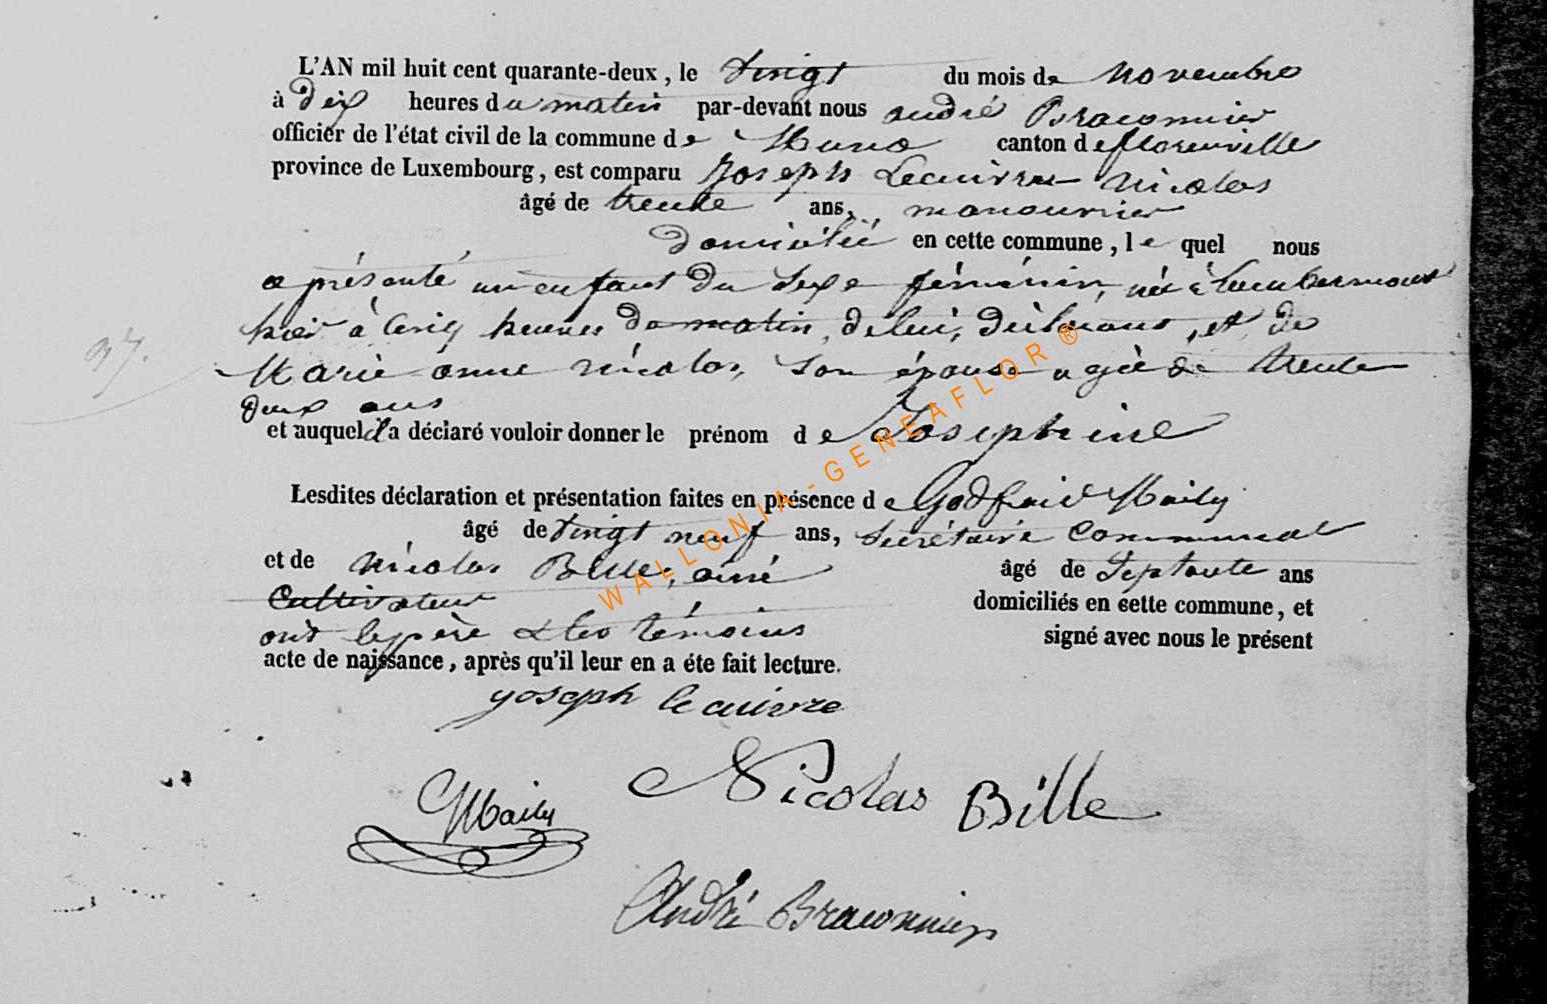 L'AN mil huit cent quarante-deux, le vingt du mois de novembre
à dix heures du matin par-devant nous andré Braconnier
officier de l'état civil de la commune de Muno canton de florenville
province de Luxembourg, est comparu Joseph Lecuivre Nicolas
âgé de trente ans, manouvrier
domicilié en cette commune, le quel nous
a présenté un enfant du sexe féminin, né à Lambermont
hier à cinq heures du matin, de lui, déclarant, et de
Marie anne Nicolas, son épouse agée de trente
deux ans
et auquel il a déclaré vouloir donner le prénom de Josephine
37.
Lesdites déclaration et présentation faites en présence de Godfroid Maily
âgé de vingt neuf ans, secrétaire communal
et de Nicolas Bille, ainé âgé de septante ans
Cultivateur domiciliés en cette commune, et
ont le père & les témoins signé avec nous le présent
acte de naissance, après qu'il leur en a éte fait lecture.
joseph lecuivre
GMaily Nicolas Bille
André Braconnier
WALLONIA-GENEAFLOR®